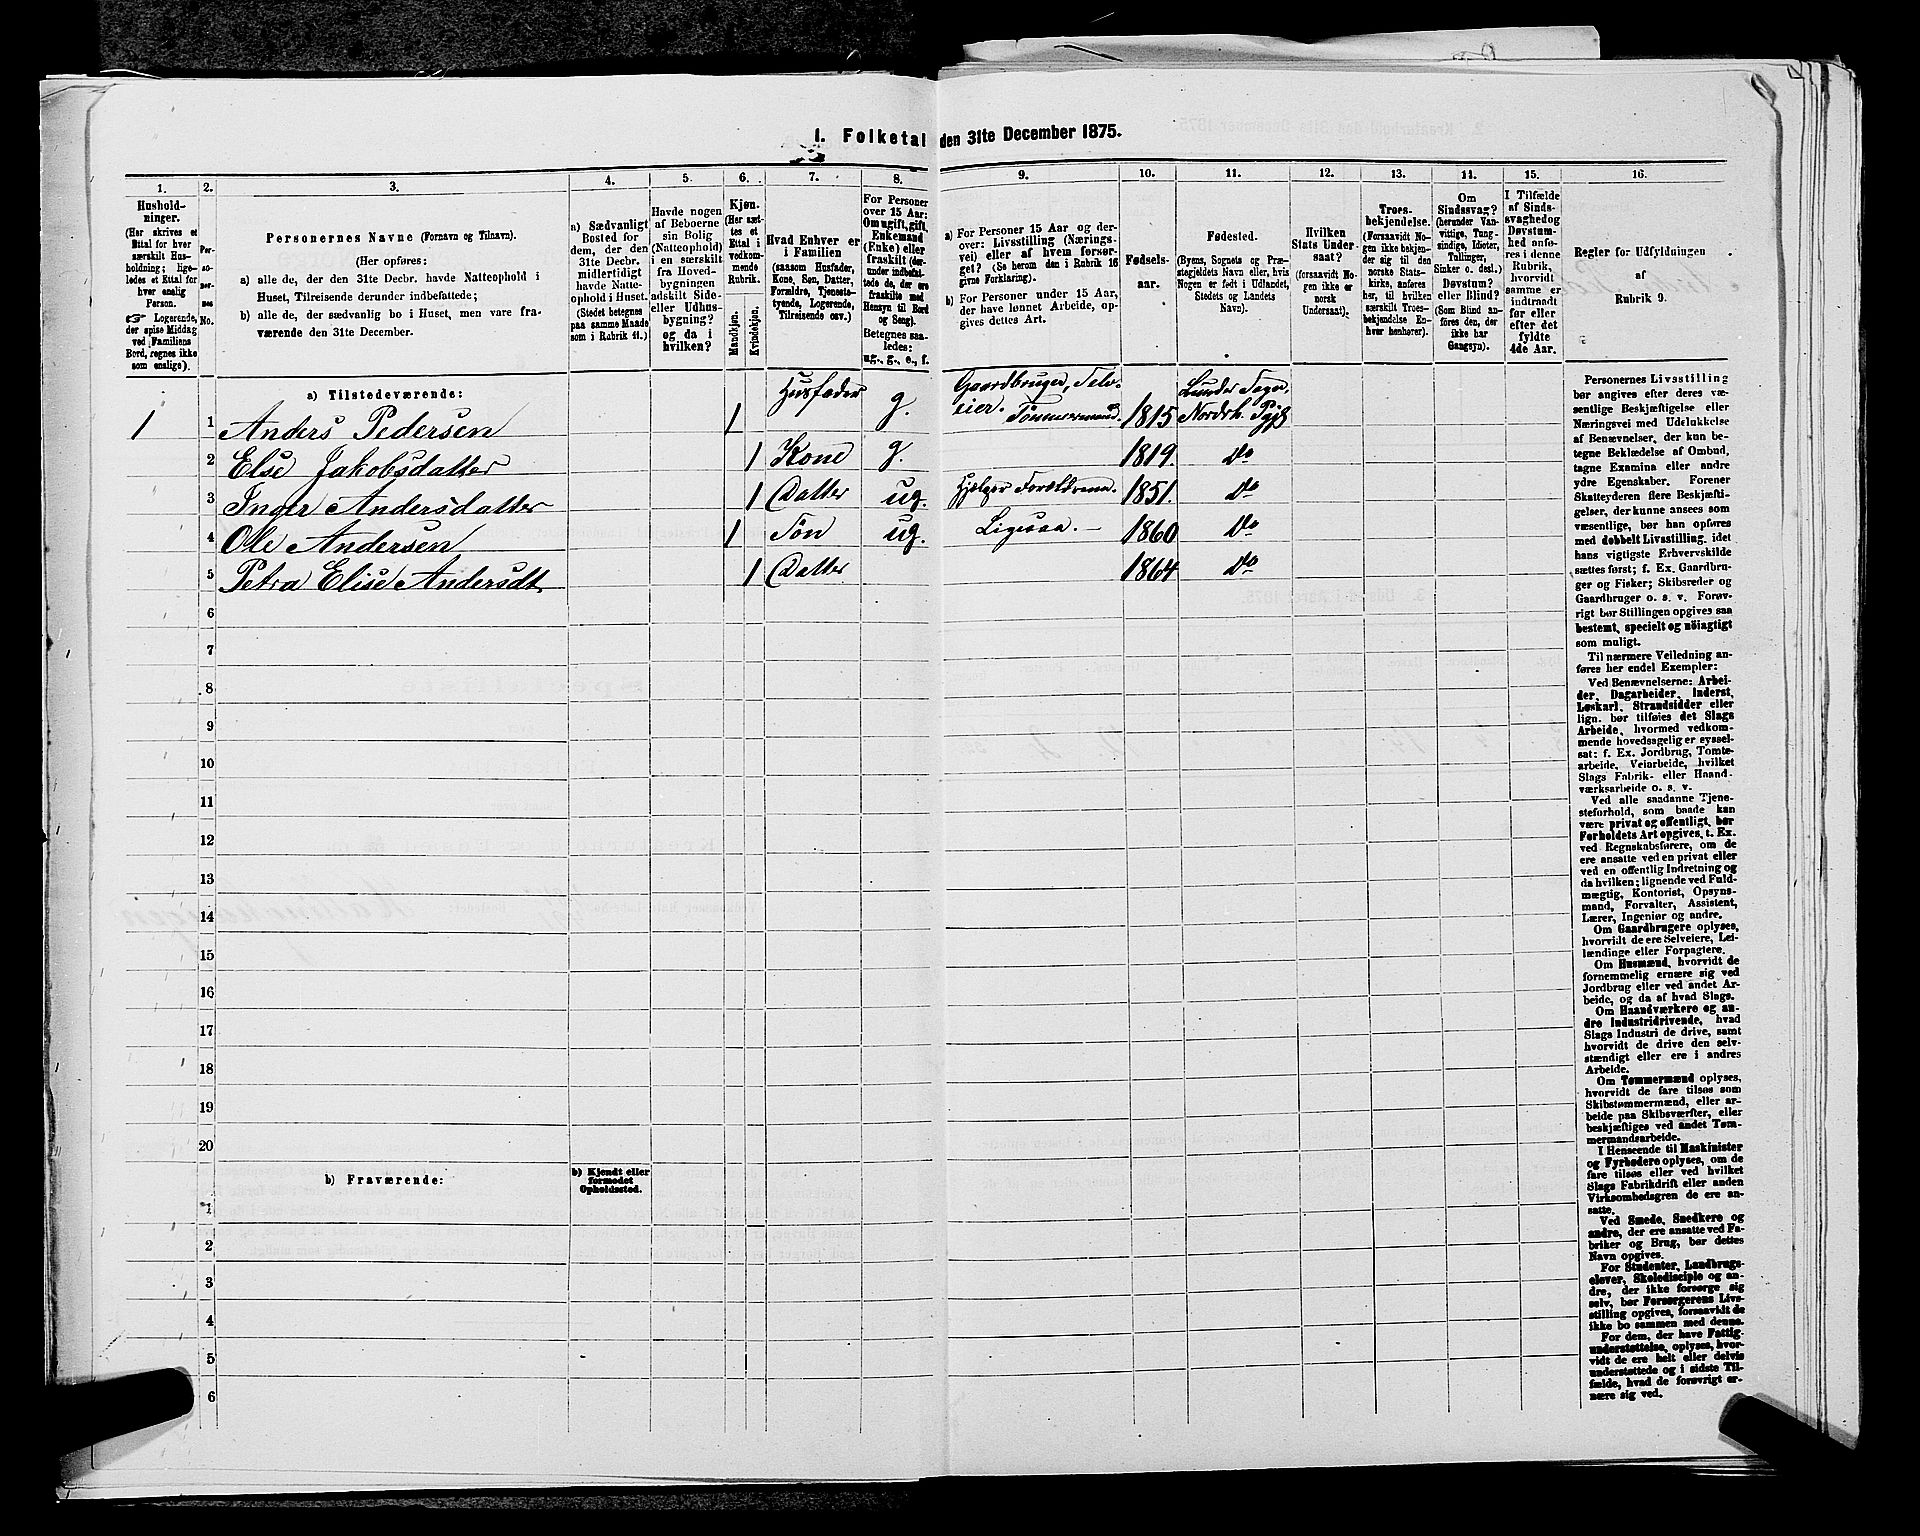 1. Folketal den 31te December 1875.
1. 2. 3. 4. 5. 6. 7. 8. 9. 10. 11. 12. 13. 14. 15. 16.
Hushold-
ninger.
(Her skrives et
Ettal for hver
særskilt Hus-
holdning; lige-
ledes et Ettal for
hver enslig
Person.
☞ Logerende,
der spise Middag
ved Familiens
Bord, regnes ikke
som enslige).
Per-
so-
ner-
nes
No.
Personernes Navne (Fornavn og Tilnavn).
(Her opføres:
a) alle de, der den 31te Decbr. havde Natteophold i
Huset, Tilreisende derunder indbefattede;
b) alle de, der sædvanlig bo i Huset, men vare fra-
værende den 31te December.
a) Sædvanligt
Bosted for
dem, der den
31te Decbr.
midlertidigt
havde Natte-
ophold i Huset.
(Stedet betegnes
paa samme Maade
som i Rubrik 11.)
Havde nogen
af Beboerne
sin Bolig
(Natteophold)
i en særskilt
fra Hoved-
bygningen
adskilt Side-
eller Udhus-
bygning?
og da i
hvilken?
Kjøn.
(Her sæt-
tes et
Ettal i
vedkom-
mende
Rubrik.
Mandkjøn.
Kvindekjøn.
Hvad Enhver er
i Familien
(saasom Husfader,
Kone, Søn, Datter,
Forældre, Tjeneste-
tyende, Logerende,
Tilreisende osv.)
For Personer
over 15 Aar:
Om ugift, gift,
Enkemand
(Enke) eller
fraskilt (der-
under indbefat-
tede de, der ere
fraskilte med
Hensyn til Bord
og Seng).
Betegnes saa-
ledes:
ug., g., e., f.
a) For Personer 15 Aar og der-
over: Livsstilling (Nærings-
vei) eller af hvem forsør-
get? (Se herom den i Rubrik 16
givne Forklaring).
b) For Personer under 15 Aar,
der have lønnet Arbeide, op-
gives dettes Art.
Fødsels-
aar.
Fødested.
(Byens, Sognets og Præ-
stegjeldets Navn eller, hvis
Nogen er født i Udlandet,
Stedets og Landets
Navn).
Hvilken
Stats Under-
saat?
(forsaavidt No-
gen ikke er
norsk
Undersaat).
Troes-
bekjendelse.
(Forsaavidt No-
gen ikke bekjen-
der sig til den
norske Stats-
kirke, anføres
her, til hvilken
særskilt Troes-
bekjendelse En-
hver henhører).
Om
Sindssvag?
(herunder Van-
vittige, Tung-
sindige, Idioter,
Tullinger,
Sinker o. desl.)
Døvstum?
eller Blind?
(Som Blind an-
føres den, der
ikke har
Gangsyn).
I Tilfælde
af Sinds-
svaghed og
Døvstum-
hed anfø-
res i denne
Rubrik,
hvorvidt
samme er
indtraadt
før eller
efter det
fyldte
4de Aar.
Regler for Udfyldningen
af
Rubrik 9.
a) Tilstedeværende:
1 1 Anders Pedersen 1 Husfader g. Gaardbruger, Selv-
eier. Tømmermand. 1815 Lunder Sogn,
Nordrh. Pgjd
2 Else Jakobsdatter 1 Kone g. 1819. do
3 Inger Andersdatter 1 Datter ug. Hjelper Forældrene. 1851. do
4 Ole Andersen 1 Søn ug. Ligesaa. – 1860 do
5 Petra Elise Andersdt. 1 Datter 1864 do
6
7
8
9
10
11
12
13
14
15
16
17
18
19
20
b) Fraværende:
b) Kjendt eller
formodet
Opholdssted.
1
2
3
4
5
6
Personernes Livsstilling
bør angives efter deres væ-
sentlige Beskjæftigelse eller
Næringsvei med Udelukkelse
af Benævnelser, der kun be-
tegne Beklædelse af Ombud,
tagne Examina eller andre
ydre Egenskaber. Forener
Skatteyderen flere Beskjæfti-
gelser, der kunne ansees som
væsentlige, bør han opføres
med dobbelt Livsstilling, idet
hans vigtigste Erhvervskilde
sættes først; f. Ex. Gaardbru-
ger og Fisker; Skibsreder og
Gaardbruger o. s. v. Forøv-
rigt bør Stillingen opgives saa
bestemt, specielt og nøiagtigt
som muligt.
Til nærmere Veiledning an-
føres her endel Exempler:
Ved Benævnelserne: Arbei-
der, Dagarbeider, Inderst,
Løskarl, Strandsidder eller
lign. bør tilføies det Slags
Arbeide, hvormed vedkom-
mende hovedsagelig er syssel-
sat; f. Ex. Jordbrug, Tomte-
arbeide, Veiarbeide, hvilket
Slags Fabrik- eller Haand-
værksarbeide o. s. v.
Ved alle saadanne Tjene-
steforhold, som baade kan
være privat og offentligt, bør
Forholdets Art opgives, t. Ex.
ved Regnskabsførere, om de
ere ansatte ved en privat eller
ved en offentlig Indretning og
da hvilken; lignende ved Fuld-
mægtig, Kontorist, Opsyns-
mand, Forvalter, Assistent,
Lærer, Ingeniør og andre.
Om Gaardbrugere oplyses,
hvorvidt de ere Selveiere, Lei-
lændinge eller Forpagtere.
Om Husmænd, hvorvidt de
fornemmelig ernære sig ved
Jordbrug eller ved andet Ar-
beide, og da af hvad Slags.
Om Haandværkere og an-
dre Industridrivende, hvad
Slags Industri de drive, samt
hvorvidt de drive den selv-
stændigt eller ere i andres
Arbeide.
Om Tømmermænd oplyses,
hvorvidt de fare tilsøs som
Skibstømmermænd, eller ar-
beide paa Skibsværfter, eller
beskjæftiges ved andet Tøm-
mermandsarbeide.
I Henseende til Maskinister
og Fyrbødere oplyses, om de
fare tilsøs eller ved hvilket
Slags Fabrikdrift eller anden
Virksomhedsgren de ere an-
satte.
Ved Smede, Snedkere og
andre, der ere ansatte ved Fa-
briker og Brug, bør dettes
Navn opgives.
For Studenter, Landbrugs-
elever, Skoledisciple og an-
dre, der ikke forsørge sig
selv, bør Forsørgerens Livs-
stilling opgives, forsaavidt de
ikke bo sammen med denne.
For dem, der have Fattig-
understøttelse, oplyses, hvor-
vidt de ere helt eller delvis
understøttede og i sidste Til-
fælde, hvad de forøvrigt er-
nære sig ved.